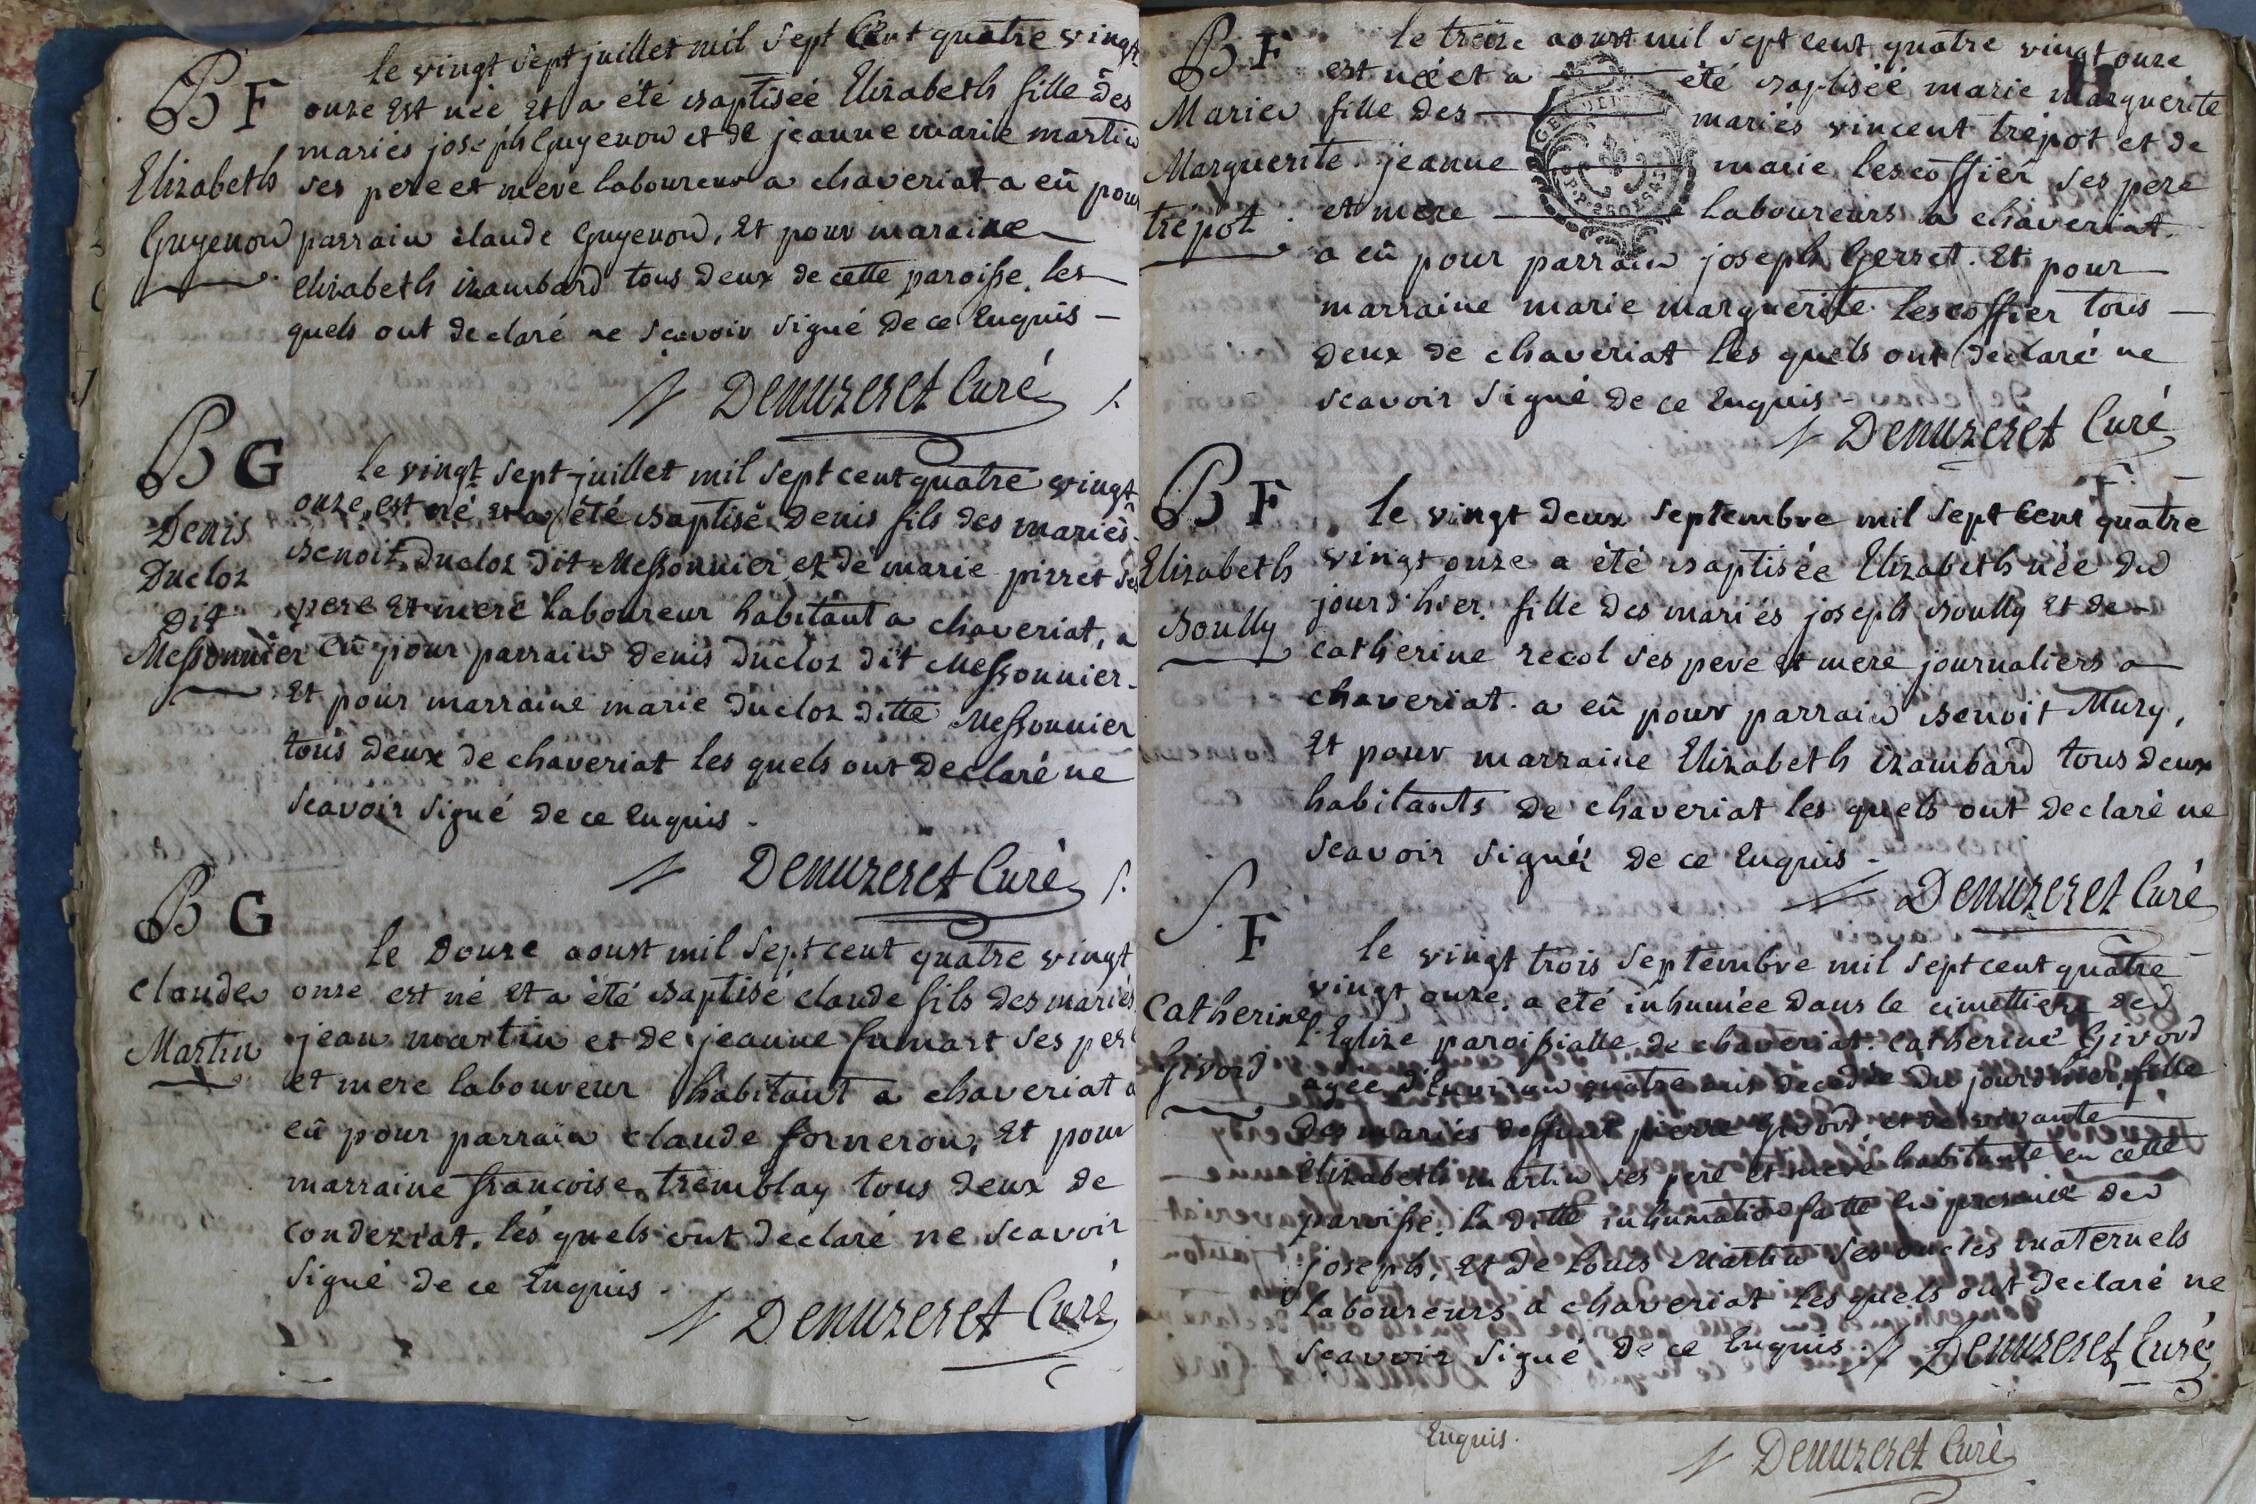 B F
Elizabeth
Guyenon
le vingt sept juillet mil sept Cent quatre vingt
onze est née et a été baptisée Elizabeth fille des
mariés joseph Guyenon et de jeanne marie martin
ses pere et mere laboureur a chaveriat a eû pour
parrain claude Guyenon, et pour maraine
elizabeth izambard tous deux de cette paroisse. les
quels ont declaré ne scavoir signé de ce Enquis
Denuzeret Curé
B G
Denis
Ducloz
dit
Messonnier
le vingt sept juillet mil sept cent quatre vingt
onze, est né et a été baptisé Denis fils des mariés
Benoit Ducloz dit Messonnier et de marie pirret ses
pere et mere laboureur habitant a chaveriat, a
eû pour parrain denis Ducloz dit Messonnier
et pour marraine marie Ducloz ditte Messonnier
tous deux de chaveriat les quels ont declaré ne
scavoir signé de ce Enquis
Denuzeret Curé
B G
claude
Martin
le douze aoust mil sept cent quatre vingt
onze est né et a été baptisé claude fils des mariés
jean martin et de jeanne fumart ses pere
et mere laboureur habitant a chaveriat a
eû pour parrain claude forneron, et pour
marraine francoise tremblay tous deux de
condeziat. les quels ont declaré ne scavoir
signé de ce Enquis
Denuzeret Curé
B F
Marie
Marguerite
trépot
le treize aoust mil sept cent quatre vingt onze
est née et a été baptisée marie marguerite
fille des mariés vincent trépot et de
jeanne marie lescoffier ses pere
et mere laboureurs a chaveriat.
a eû pour parrain joseph Gerret. Et pour
marraine marie marguerite lescoffier tous
deux de chaveriat les quels ont declaré ne
scavoir signé de ce Enquis
Denuzeret Curé
B F
Elizabeth
Boully
le vingt deux septembre mil sept Cent quatre
vingt onze a été baptisée Elizabeth née du
jour d'hier. fille des mariés joseph Boully et de
catherine recol ses pere et mere journaliers a
chaveriat. a eû pour parrain Benoit Mury,
et pour marraine Elizabeth izambard tous deux
habitants de chaveriat les quels ont declaré ne
scavoir signé de ce Enquis
Denuzeret Curé
S. F
Catherine
Givord
le vingt trois septembre mil sept cent quatre
vingt onze. a été inhumée dans le cimettiere de
l'Eglize paroissialle de chaveriat. catherine Givord
agée d'environ quatre ans decedée du jour d'hier, fille
des mariés deffunt pierre Givord et de vivante
Elizabeth martin ses pere et mere habitante en cette
paroisse. la ditte inhumation faitte en presence de
joseph, et de louis Martin ses oncles maternels
laboureurs a chaveriat les quels ont declaré ne
scavoir signé de ce Enquis. Denuzeret Curé
Enquis.
Denuzeret Curé